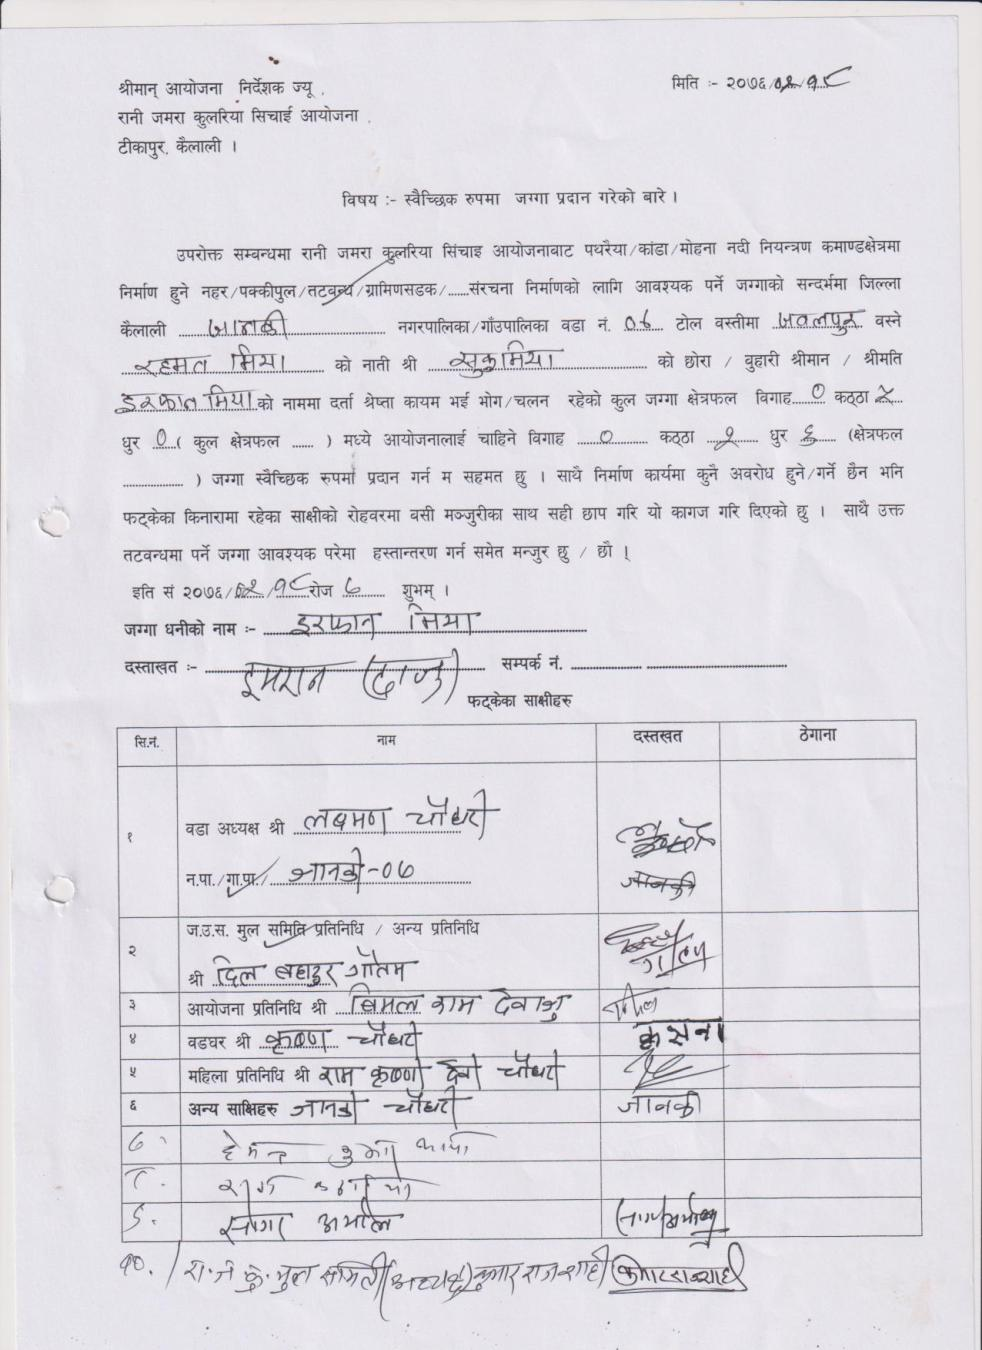 श्रीमान् आयोजना निर्देशक ज्यू ,
मिति :- २०७६/०२/१८
रानी जमरा कुलरिया सिचाई आयोजना .
टीकापुर, कैलाली ।
विषय :- स्वैच्छिक रुपमा जग्गा प्रदान गरेको बारे ।
उपरोक्त सम्बन्धमा रानी जमरा कुलरिया सिंचाइ आयोजनाबाट पथरैया/कांडा/मोहना नदी नियन्त्रण कमाण्डक्षेत्रमा
निर्माण हुने नहर/पक्कीपुल/तटवन्ध/ग्रामिणसडक/......संरचना निर्माणको लागि आवश्यक पर्ने जग्गाको सन्दर्भमा जिल्ला
कैलाली जानकी नगरपालिका/गाँउपालिका वडा नं. ०७ टोल वस्तीमा जवलपुर वस्ने
रहमत मिया को नाती श्री सुकुमिया को छोरा / वुहारी श्रीमान / श्रीमति
इरफान मिया को नाममा दर्ता श्रेष्ता कायम भई भोग/चलन रहेको कुल जग्गा क्षेत्रफल विगाह ० कठ्ठा
धुर ० ( कुल क्षेत्रफल ...... ) मध्ये आयोजनालाई चाहिने विगाह ० कठ्ठा २ धुर ६ (क्षेत्रफल
................ ) जग्गा स्वैच्छिक रुपमा प्रदान गर्न म सहमत छु । साथै निर्माण कार्यमा कुनै अवरोध हुने/गर्ने छैन भनि
फट्केका किनारामा रहेका साक्षीको रोहवरमा वसी मञ्जुरीका साथ सही छाप गरि यो कागज गरि दिएको छु । साथै उक्त
तटवन्धमा पर्ने जग्गा आवश्यक परेमा हस्तान्तरण गर्न समेत मन्जुर छु / छौ ।
इति सं २०७६/०२/१८ रोज ७ शुभम् ।
जग्गा धनीको नाम :- इरफान मिया
दस्ताखत :- इमरान (दाजु) सम्पर्क नं. ................
फट्केका साक्षीहरु
सि.नं. नाम दस्तखत ठेगाना
१ वडा अध्यक्ष श्री लक्ष्मण चौधरी
न.पा./गा.पा./ जानकी-०७ जानकी
२ ज.उ.स. मुल समिति प्रतिनिधि / अन्य प्रतिनिधि
श्री दिल बहादुर गौतम
३ आयोजना प्रतिनिधि श्री बिमल राम
४ वडघर श्री कृष्ण चौधरी क्रसना
५ महिला प्रतिनिधि श्री राम कृष्णी देवी चौधरी
६ अन्य साक्षिहरु जानकी चौधरी जानकी
७.
८.
९. सागर
१०. रा.ज.कु. मुल समिती (अध्यक्ष) कुमार राज शाही